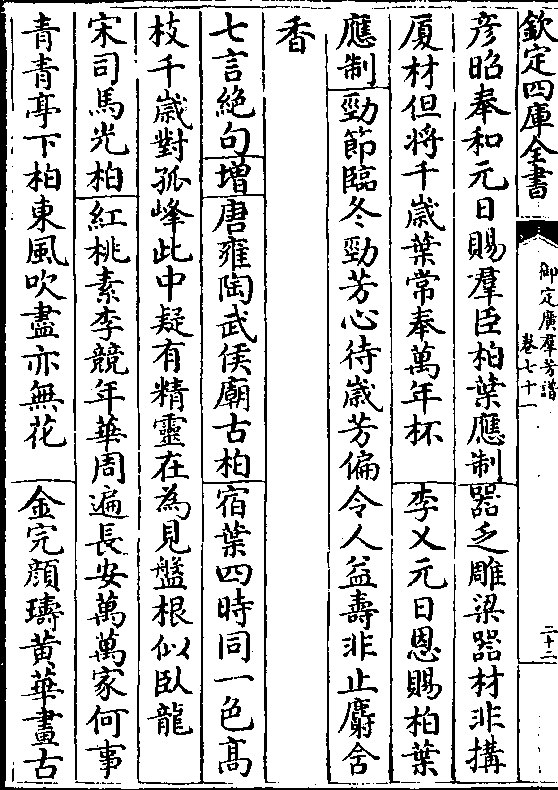 欽定四庫全書
御定廣羣芳譜
卷七十一
二十二
彦昭奉和元日賜羣臣柏葉應制器乏雕梁器材非搆
厦材但将千歳葉常奉萬年杯 李乂元日恩賜柏葉
應制勁節臨冬勁芳心待歳芳偏令人益壽非止麝含
香
七言絶句增唐雍陶武侯廟古柏宿葉四時同一色髙
枝千歳對孤峰此中疑有精靈在為見盤根似臥龍
宋司馬光柏紅桃素李競年華周遍長安萬萬家何事
青青亭下柏東風吹盡亦無花 金完顔璹黄華畫古